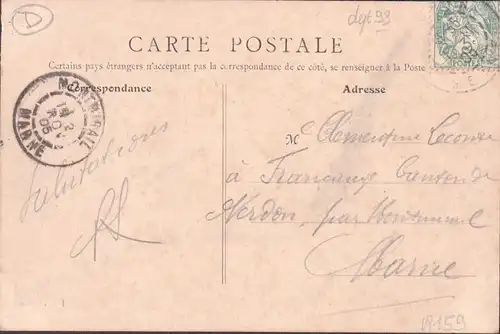 D
dpt 93
CARTE POSTALE
Certains pays étrangers n'acceptant pas la correspondance de ce côté, se renseigner à la Poste
Correspondance
Adresse
MONTMIRAIL
MARNE
05
Salutations
M
Clémentine Lecomte
à Francauge Canton de
Verdon, par Montmirail
Marne